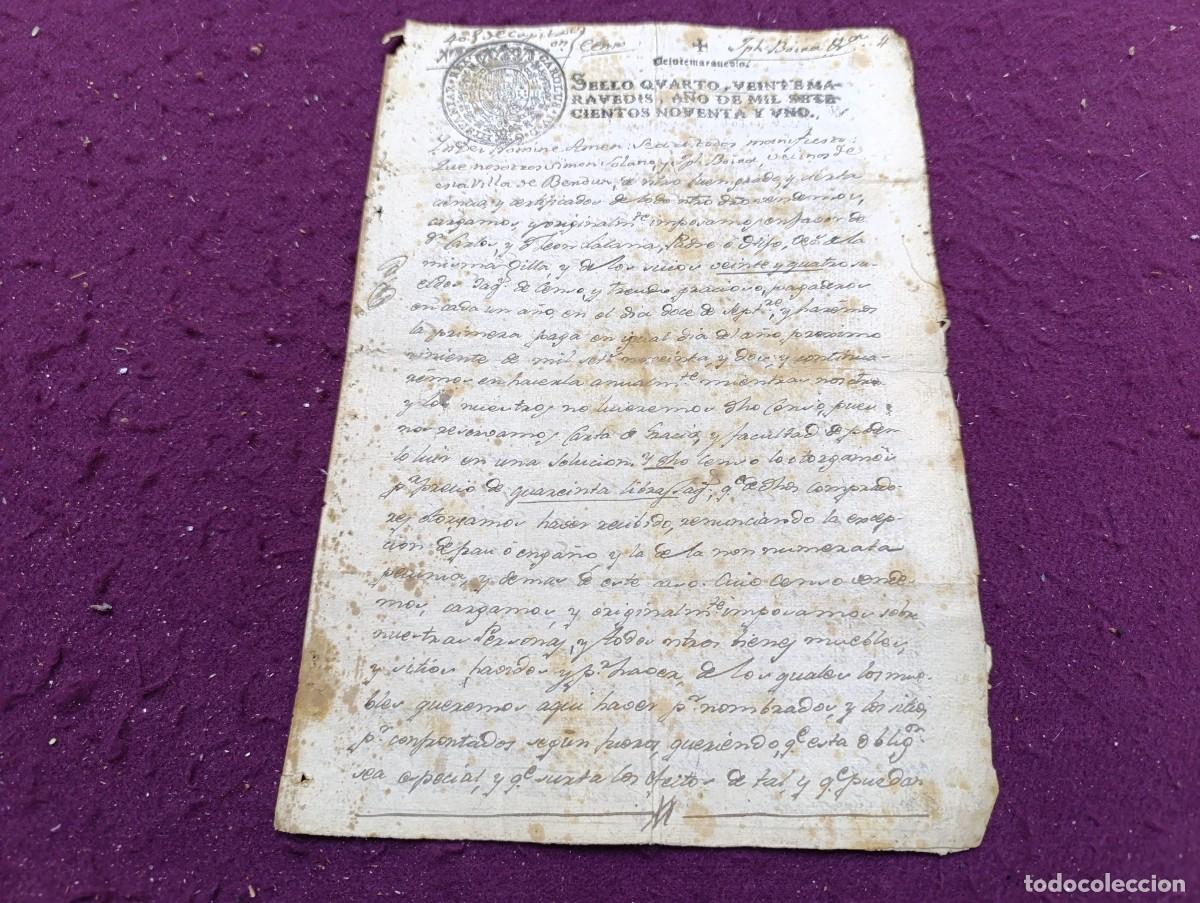 40 £ de Capital
en Censo
+
Jph. Boira
4
Veintemaravedis.
SELLO QVARTO, VEINTE MA-
RAVEDIS, AÑO DE MIL SETE
CIENTOS NOVENTA Y VNO.
In Dei Nomine Amen: Sea a todos manifiesto
Que nosotros Simon Solano, y Jph. Boira, vecinos de
esta Villa de , de ntro buen grado, y cierta
ciencia y certificados de todo ntro dro vendemos,
cargamos, y originalmte imposamos en favor de
Dn. Carlos, y Dn. Leon , Padre e Hijo, vecs. de la
misma Villa, y de los suios veinte y quatro su-
eldos Jaqs. de Censo, y treudo gracioso, pagaderos
en cada un año, en el dia doce de Septre., y haremos
la primera paga en igual dia del año proximo
viniente de mil sets. noventa, y dos, y continua-
remos en hacerla anualmte mientras nosotros
y los nuestros no lueremos dho Censo, pues
nos reservamos Carta de Gracia, y facultad de poder-
lo luir en una solucion. Y dho Censo lo otorgamos
pr. precio de quareinta libras Jaqs. qe. de dhos comprado-
res otorgamos haver recibido, renunciando la excep-
cion de frau ó engaño y la de la non numerata
pecunia, y demas de este caso. Cuio Censo vende-
mos, cargamos, y originalmte imposamos sobre
nuestras Personas, y todos ntros bienes muebles,
y sitios, havidos y pr. haver, de los quales los mue-
bles queremos aqui haver pr. nombrados, y los sitios
pr. confrontados segun fuero, queriendo, qe. esta oblign.
sea especial, y qe. surta los efectos de tal y qe. puedan
todocoleccion